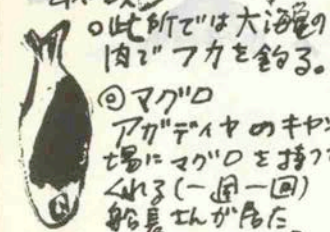 ○此所では大海亀の
肉でフカを釣る。
◎マグロ
アガディヤのキャン
場にマグロを持って
くれる(一週一回)
船長さんが居た